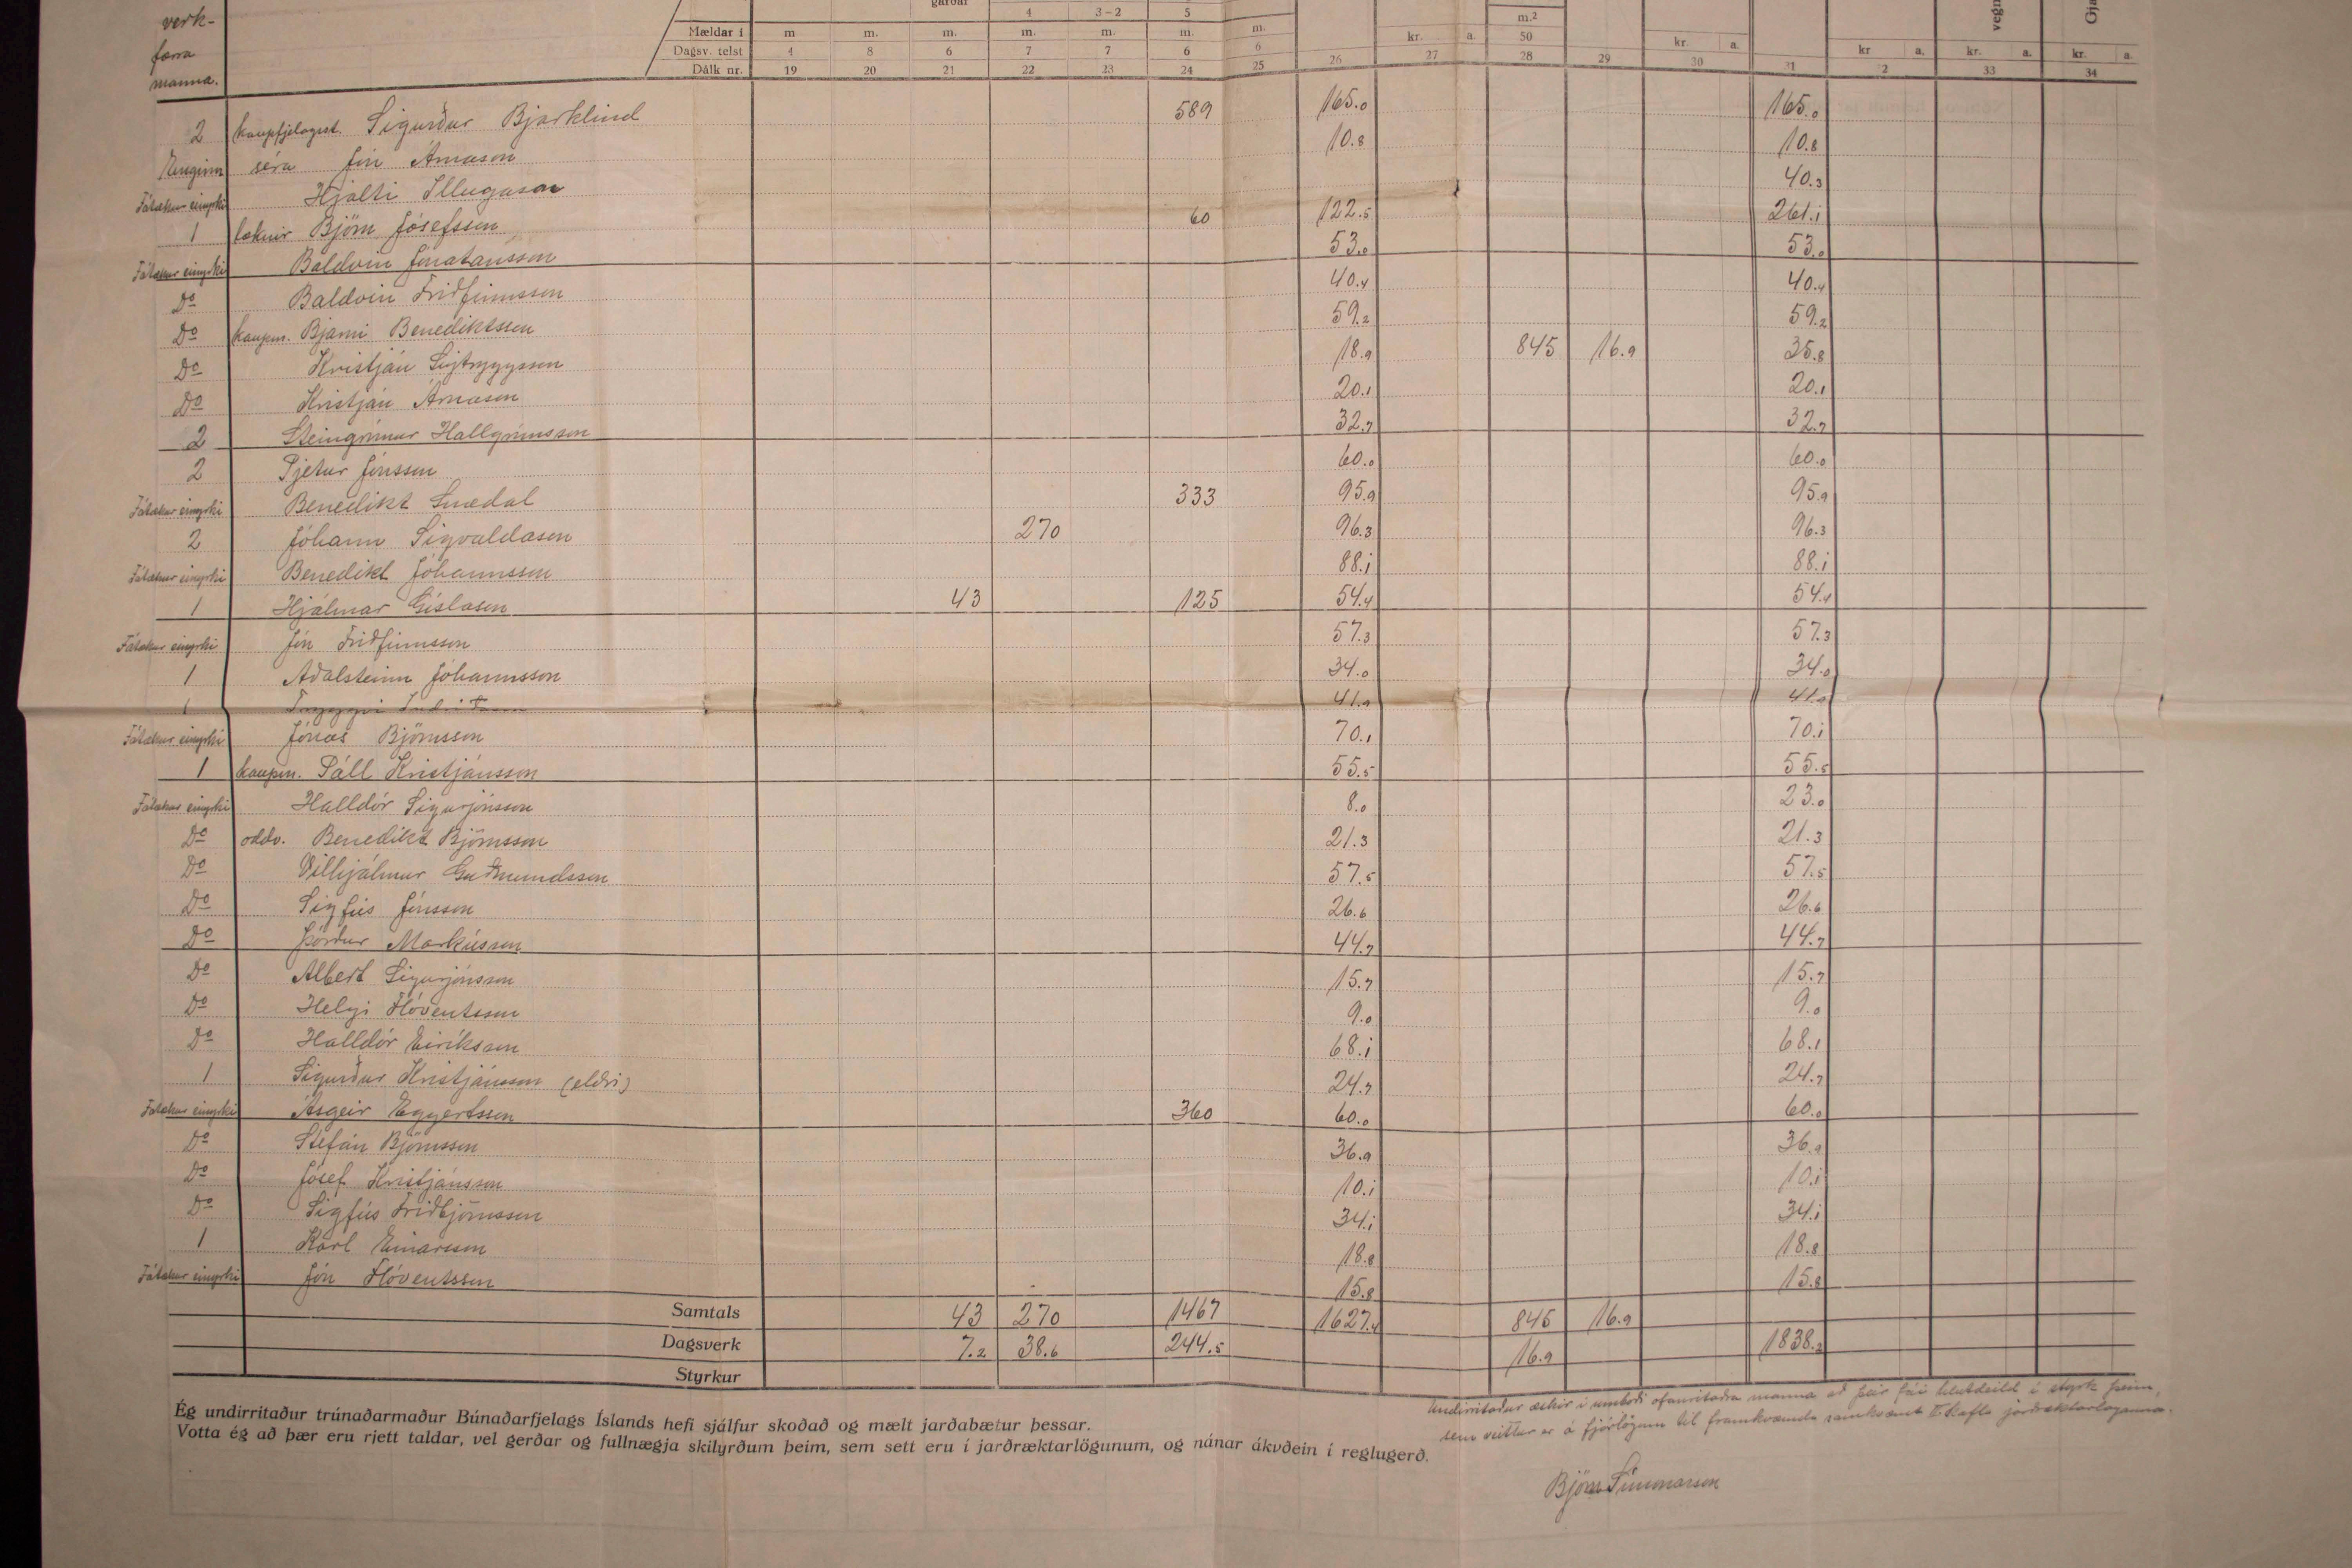 verk-
færra
manna.
garðar
4 3-2 5 m.²
Mældar í m m. m. m. m. m. m. kr. a. 50 kr. a. kr. a. kr. a. kr. a.
Dagsv. telst 4 8 6 7 7 6 6
Dálk nr. 19 20 21 22 23 24 25 26 27 28 29 30 31 32 33 34
vegn
Gja
2 kaupfjelagsst. Sigurður Bjarklind 589 165.0 165.0
Enginn séra Jón Arnason 10.8 10.8
Fátækur einyrki Hjalti Illugason 40.3
1 læknir Björn Jósefsson 60 122.5 261.1
Fátækur einyrki Baldvin Jónatansson 53.0 53.0
Do Baldvin Friðfinnsson 40.4 40.4
Do kaupm. Bjarni Benediktsson 59.2 59.2
Do Kristján Sigtryggsson 18.9 845 16.9 35.8
Do Kristján Árnason 20.1 20.1
2 Steingrímur Hallgrímsson 32.7 32.7
2 Pjetur Jónsson 60.0 60.0
Fátækur einyrki Benedikt Snædal 333 95.9 95.9
2 Jóhann Sigvaldason 270 96.3 96.3
Fátækur einyrki Benedikt Jóhannsson 88.1 88.1
1 Hjálmar Gíslason 43 125 54.4 54.4
Fátækur einyrki Jón Friðfinnsson 57.3 57.3
1 Aðalsteinn Jóhannsson 34.0 34.0
1 Tryggvi Indriðason 41.9 41.9
Fátækur einyrki Jónas Björnsson 70.1 70.1
1 kaupm. Páll Kristjánsson 55.5 55.5
Fátækur einyrki Halldór Sigurjónsson 8.0 23.0
Do oddv. Benedikt Björnsson 21.3 21.3
Do Vilhjálmur Guðmundsson 57.5 57.5
Do Sigfús Jónsson 26.6 26.6
Do Þórður Markússon 44.7 44.7
Do Albert Sigurjónsson 15.7 15.7
Do Helgi Flóventsson 9.0 9.0
Do Halldór Eiríksson 68.1 68.1
1 Sigurður Kristjánsson (eldri) 24.7 24.7
Fátækur einyrki Ásgeir Eggertsson 360 60.0 60.0
Do Stefán Björnsson 36.9 36.9
Do Jósef Kristjánsson 10.1 10.1
Do Sigfús Friðbjörnsson 34.1 34.1
1 Karl Einarsson 18.8 18.8
Fátækur einyrki Jón Flóventsson 15.8 15.8
Samtals 43 270 1467 1627.4 845 16.9
Dagsverk 7.2 38.6 244.5 16.9 1838.2
Styrkur
Ég undirritaður trúnaðarmaður Búnaðarfjelags Íslands hefi sjálfur skoðað og mælt jarðabætur þessar.
Votta ég að þær eru rjett taldar, vel gerðar og fullnægja skilyrðum þeim, sem sett eru í jarðræktarlögunum, og nánar ákvðein í reglugerð.
Undirritaður æskir í umboði ofanritaðra manna að þeir fái hlutdeild í styrk þeim,
sem veittur er á fjárlögum til framkvæmda samkvæmt II kafla jarðræktarlaganna.
Björn